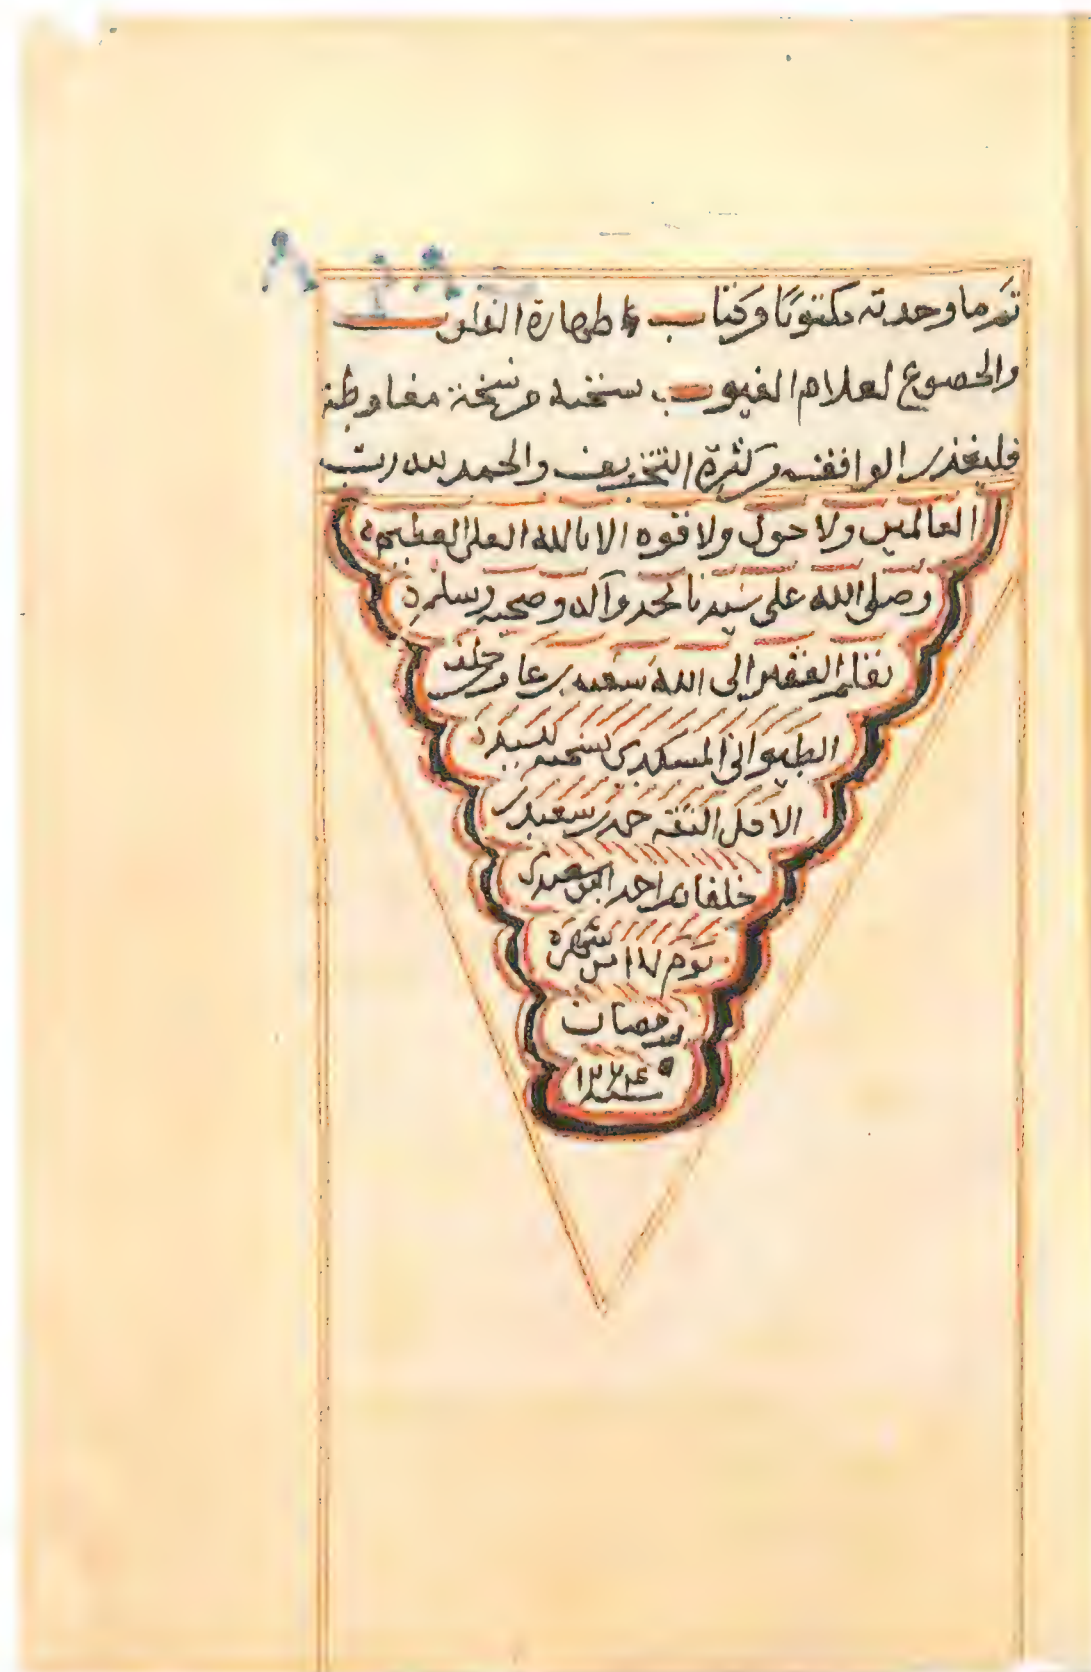 تم ما وجدته مكتوبا وكتاب طهارة القلوب
والخضوع لعلام الغيوب نسخته من نسخة
فليعذر الواقف من كثرة التحريف والحمد لله رب
العالمين ولا حول ولا قوة الا بالله العلي العظيم
وصلى الله على سيدنا محمد وآله وصحبه وسلم
بقلم الفقير الى الله سعيد بن خلف
الطيواني المسكدي نسخه لسيده
الثقة سعيد بن
خلفان بن احمد البوسعيدي
يوم شهر
رمضان
سنة ١٢٢٤